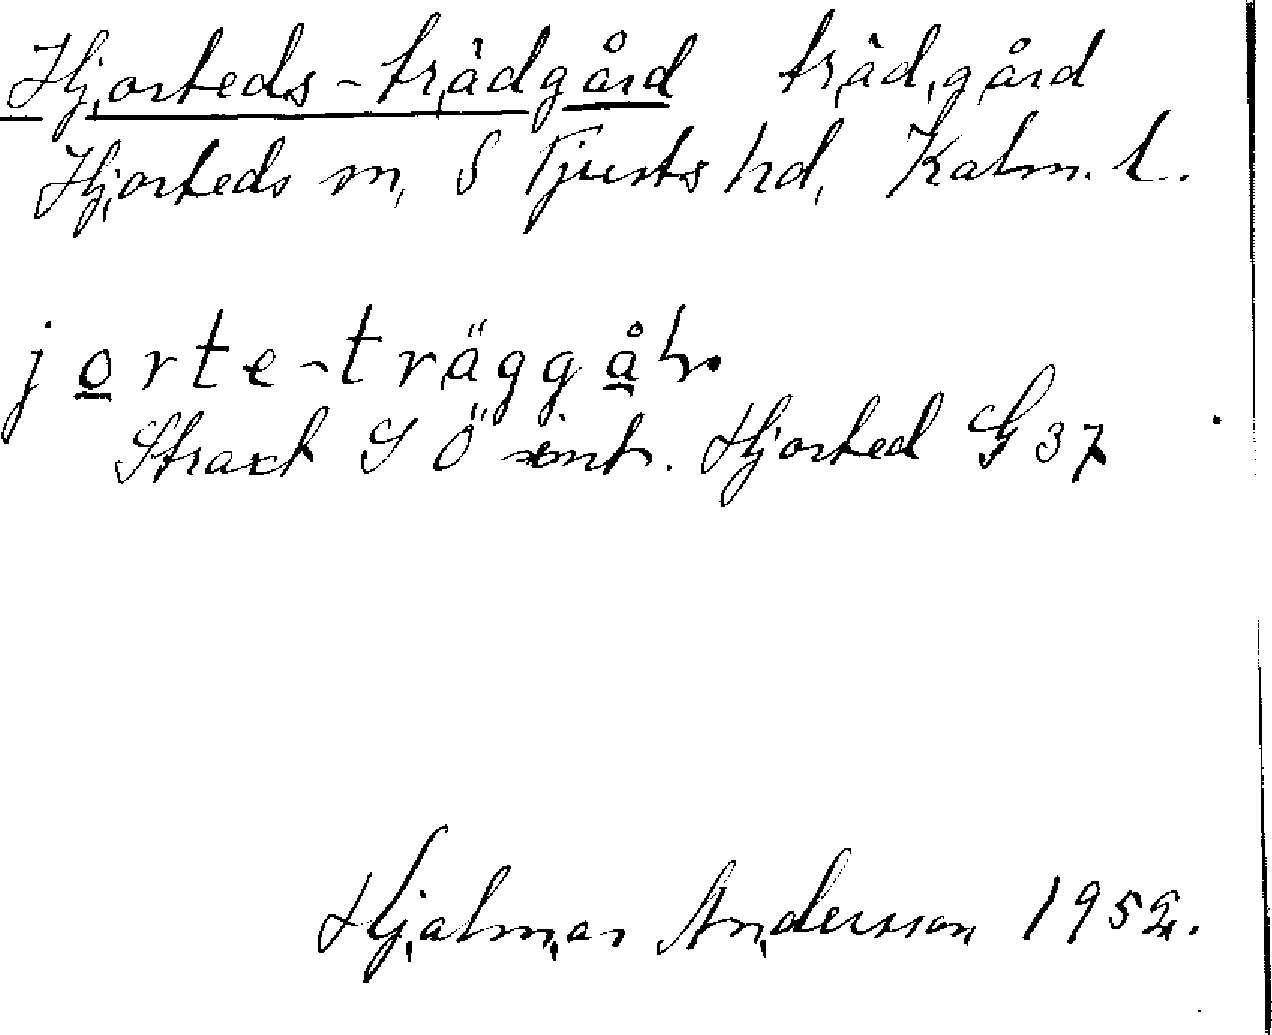 Hjorteds-trädgård trädgård
Hjorteds sn, S Tjusts hd, Kalm. l.
jorte-träggål.
Straxt S Ö int. Hjorted G 37
Hjalmar Andersson 1952.